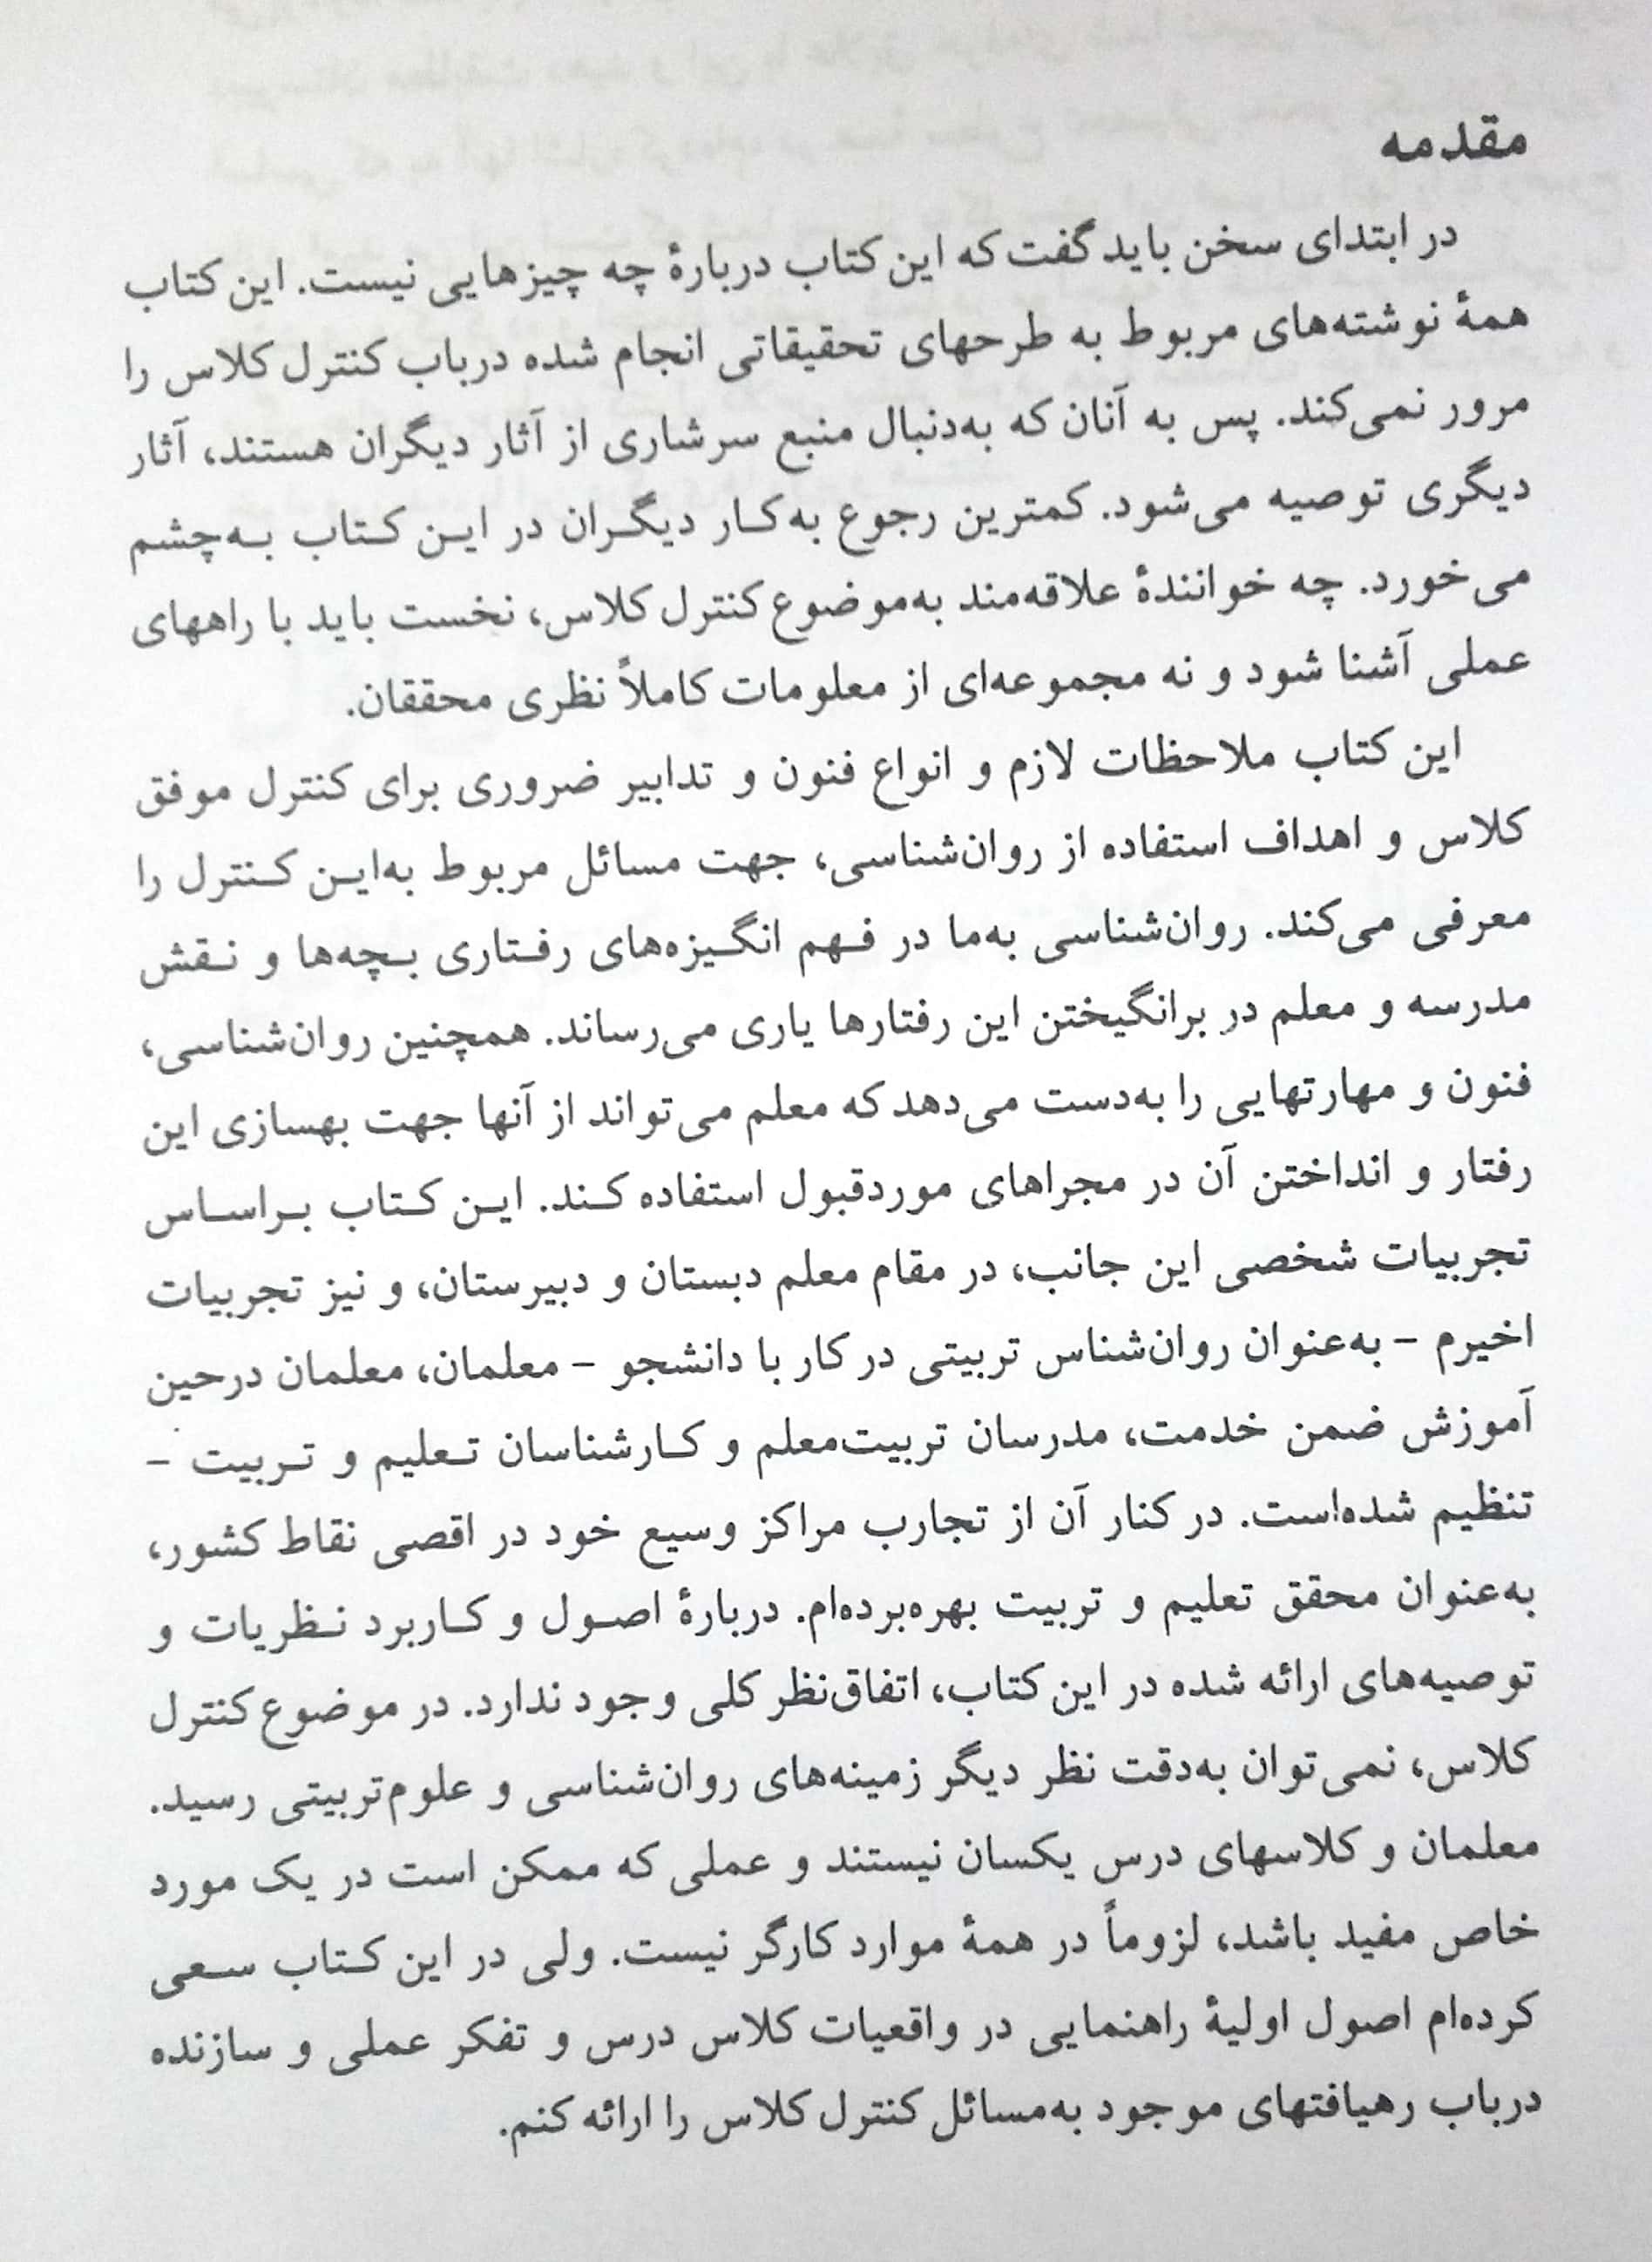 مقدمه
در ابتدای سخن باید گفت که این کتاب دربارهٔ چه چیزهایی نیست. این کتاب
همهٔ نوشته‌های مربوط به طرحهای تحقیقاتی انجام شده درباب کنترل کلاس را
مرور نمی‌کند. پس به آنان که به‌دنبال منبع سرشاری از آثار دیگران هستند، آثار
دیگری توصیه می‌شود. کمترین رجوع به‌کار دیگران در این کتاب به‌چشم
می‌خورد. چه خوانندهٔ علاقه‌مند به‌موضوع کنترل کلاس، نخست باید با راههای
عملی آشنا شود و نه مجموعه‌ای از معلومات کاملاً نظری محققان.
این کتاب ملاحظات لازم و انواع فنون و تدابیر ضروری برای کنترل موفق
کلاس و اهداف استفاده از روان‌شناسی، جهت مسائل مربوط به‌این کنترل را
معرفی می‌کند. روان‌شناسی به‌ما در فهم انگیزه‌های رفتاری بچه‌ها و نقش
مدرسه و معلم در برانگیختن این رفتارها یاری می‌رساند. همچنین روان‌شناسی،
فنون و مهارتهایی را به‌دست می‌دهد که معلم می‌تواند از آنها جهت بهسازی این
رفتار و انداختن آن در مجراهای موردقبول استفاده کند. این کتاب براساس
تجربیات شخصی این جانب، در مقام معلم دبستان و دبیرستان، و نیز تجربیات
اخیرم – به‌عنوان روان‌شناس تربیتی در کار با دانشجو – معلمان، معلمان درحین
آموزش ضمن خدمت، مدرسان تربیت‌معلم و کارشناسان تعلیم و تربیت –
تنظیم شده‌است. در کنار آن از تجارب مراکز وسیع خود در اقصی نقاط کشور،
به‌عنوان محقق تعلیم و تربیت بهره‌برده‌ام. دربارهٔ اصول و کاربرد نظریات و
توصیه‌های ارائه شده در این کتاب، اتفاق‌نظر کلی وجود ندارد. در موضوع کنترل
کلاس، نمی‌توان به‌دقت نظر دیگر زمینه‌های روان‌شناسی و علوم‌تربیتی رسید.
معلمان و کلاسهای درس یکسان نیستند و عملی که ممکن است در یک مورد
خاص مفید باشد، لزوماً در همهٔ موارد کارگر نیست. ولی در این کتاب سعی
کرده‌ام اصول اولیهٔ راهنمایی در واقعیات کلاس درس و تفکر عملی و سازنده
درباب رهیافتهای موجود به‌مسائل کنترل کلاس را ارائه کنم.